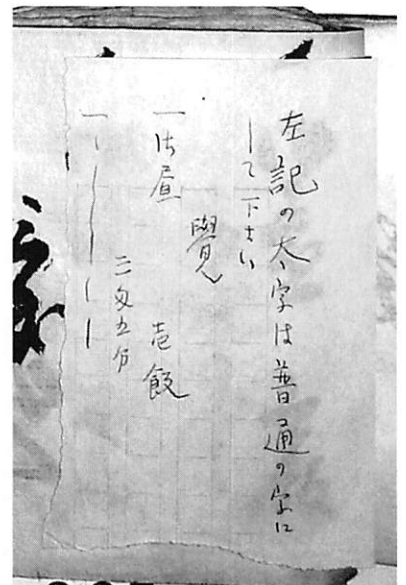 左記の太字は普通の字に
して下さい
覺
一 御昼 壱飯
二匁五分
一